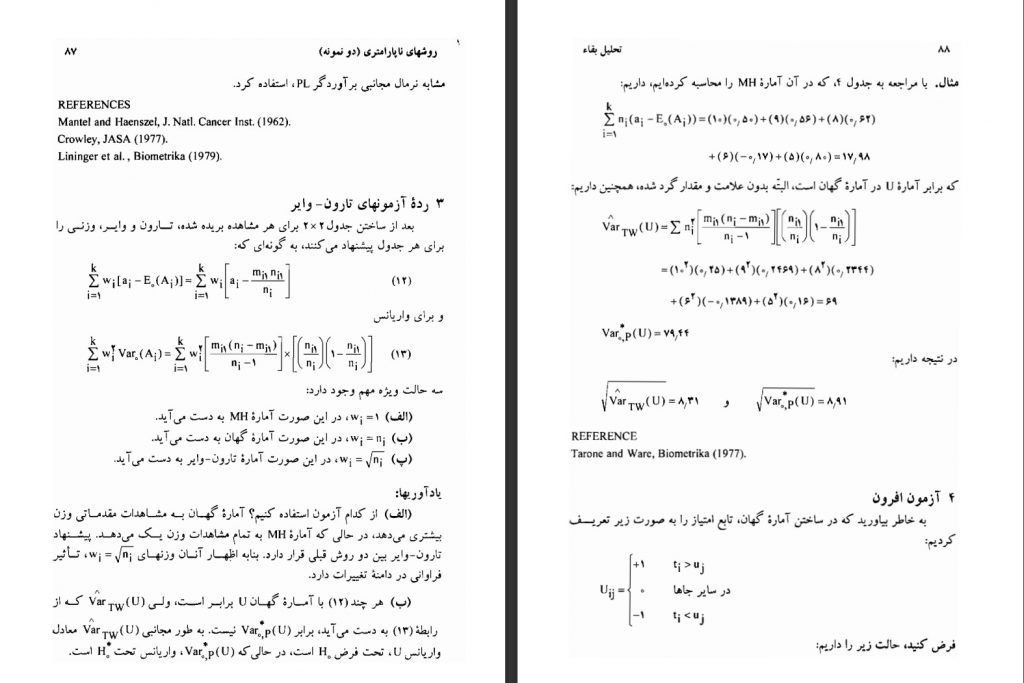 روشهای ناپارامتری (دو نمونه) ۸۷
مشابه نرمال مجانبی برآوردگر PL، استفاده کرد.
REFERENCES
Mantel and Haenszel, J. Natl. Cancer Inst. (1962).
Crowley, JASA (1977).
Lininger et al., Biometrika (1979).
۳ ردهٔ آزمونهای تارون- وایر
بعد از ساختن جدول ۲×۲ برای هر مشاهده بریده شده، تارون و وایر، وزنی را
برای هر جدول پیشنهاد می‌کنند، به گونه‌ای که:
∑_{i=۱}^{k} w_i [a_i − E_۰(A_i)] = ∑_{i=۱}^{k} w_i [a_i − m_{i۱} n_{i۱} / n_i] (۱۲)
و برای واریانس
∑_{i=۱}^{k} w_i^۲ Var_۰(A_i) = ∑_{i=۱}^{k} w_i^۲ [m_{i۱}(n_i − m_{i۱}) / (n_i − ۱)] × [(n_{i۱}/n_i)(۱ − n_{i۱}/n_i)] (۱۳)
سه حالت ویژه مهم وجود دارد:
(الف) w_i = ۱، در این صورت آمارهٔ MH به دست می‌آید.
(ب) w_i = n_i، در این صورت آمارهٔ گهان به دست می‌آید.
(پ) w_i = √n_i، در این صورت آمارهٔ تارون-وایر به دست می‌آید.
یادآوریها:
(الف) از کدام آزمون استفاده کنیم؟ آمارهٔ گهان به مشاهدات مقدماتی وزن
بیشتری می‌دهد، در حالی که آمارهٔ MH به تمام مشاهدات وزن یک می‌دهد. پیشنهاد
تارون-وایر بین دو روش قبلی قرار دارد. بنابه اظهار آنان وزنهای w_i = √n_i، تأثیر
فراوانی در دامنهٔ تغییرات دارد.
(ب) هر چند (۱۲) با آمارهٔ گهان U برابر است، ولی Vâr_TW(U) که از
رابطهٔ (۱۳) به دست می‌آید، برابر Var*_{۰,P}(U) نیست. به طور مجانبی Vâr_TW(U) معادل
واریانس U، تحت فرض H_۰ است، در حالی‌که Var*_{۰,P}(U)، واریانس تحت H*_۰ است.
۸۸ تحلیل بقاء
مثال. با مراجعه به جدول ۴، که در آن آمارهٔ MH را محاسبه کرده‌ایم، داریم:
∑_{i=۱}^{k} n_i(a_i − E_۰(A_i)) = (۱۰)(۰٫۵۰)+(۹)(۰٫۵۶)+(۸)(۰٫۶۲)
+(۶)(−۰٫۱۷)+(۵)(۰٫۸۰)=۱۷٫۹۸
که برابر آمارهٔ U در آمارهٔ گهان است، البتّه بدون علامت و مقدار گرد شده، همچنین داریم:
Vâr_TW(U) = ∑ n_i^۲ [m_{i۱}(n_i − m_{i۱}) / (n_i − ۱)] [(n_{i۱}/n_i)(۱ − n_{i۱}/n_i)]
=(۱۰^۲)(۰٫۲۵)+(۹^۲)(۰٫۲۴۶۹)+(۸^۲)(۰٫۲۳۴۴)
+(۶^۲)(−۰٫۱۳۸۹)+(۵^۲)(۰٫۱۶)=۶۹
Var*_{۰,P}(U)=۷۹٫۴۴
در نتیجه داریم:
√Vâr_TW(U) = ۸٫۳۱ و √Var*_{۰,P}(U) = ۸٫۹۱
REFERENCE
Tarone and Ware, Biometrika (1977).
۴ آزمون افرون
به خاطر بیاورید که در ساختن آمارهٔ گهان، تابع امتیاز را به صورت زیر تعریف
کردیم:
+۱ t_i > u_j
U_ij = ۰ در سایر جاها
−۱ t_i < u_j
فرض کنید، حالت زیر را داریم: